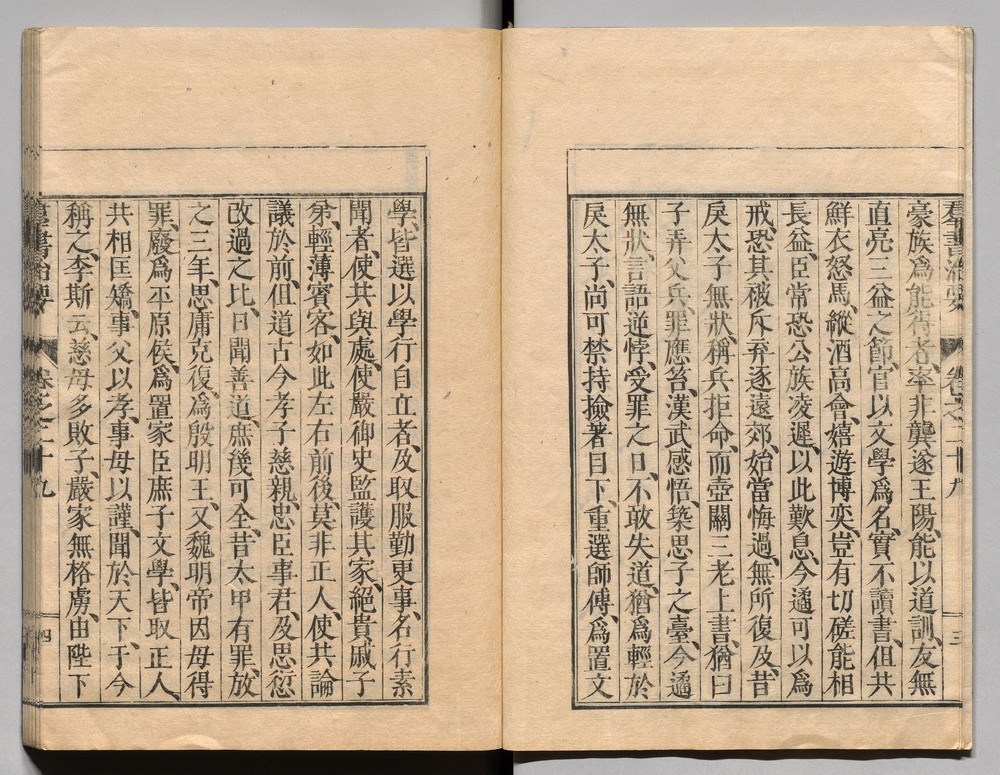 群書治要 卷之二十九 三
豪族爲能得者、率非龔遂王陽、能以道訓、友無
直亮三益之節、官以文學爲名、實不讀書、但共
鮮衣怒馬、縱酒高會、嬉遊博奕、豈有切磋能相
長益、臣常恐公族凌遲、以此歎息、今遹可以爲
戒、恐其被斥弃逐遠郊、始當悔過、無所復及、昔
戾太子無狀、稱兵拒命、而壺關三老上書、猶曰
子弄父兵、罪應笞、漢武感悟、築思子之臺、今遹
無狀、言語逆悖、受罪之日、不敢失道、猶爲輕於
戾太子、尚可禁持撿著目下、重選師傅、爲置文
學、皆選以學行自立者、及取服勤更事、名行素
聞者、使共與處、使嚴御史監護其家、絕貴戚子
弟、輕薄賓客、如此左右前後、莫非正人、使共論
議於前、但道古今孝子慈親、忠臣事君、及思愆
改過之比、日聞善道、庶幾可全、昔太甲有罪、放
之三年、思庸克復、爲殷明王、又魏明帝因母得
罪、廢爲平原侯、爲置家臣庶子文學、皆取正人、
共相匡矯、事父以孝、事母以謹、聞於天下、于今
稱之、李斯云、慈母多敗子、嚴家無格虜、由陛下
群書治要 卷之二十九 四